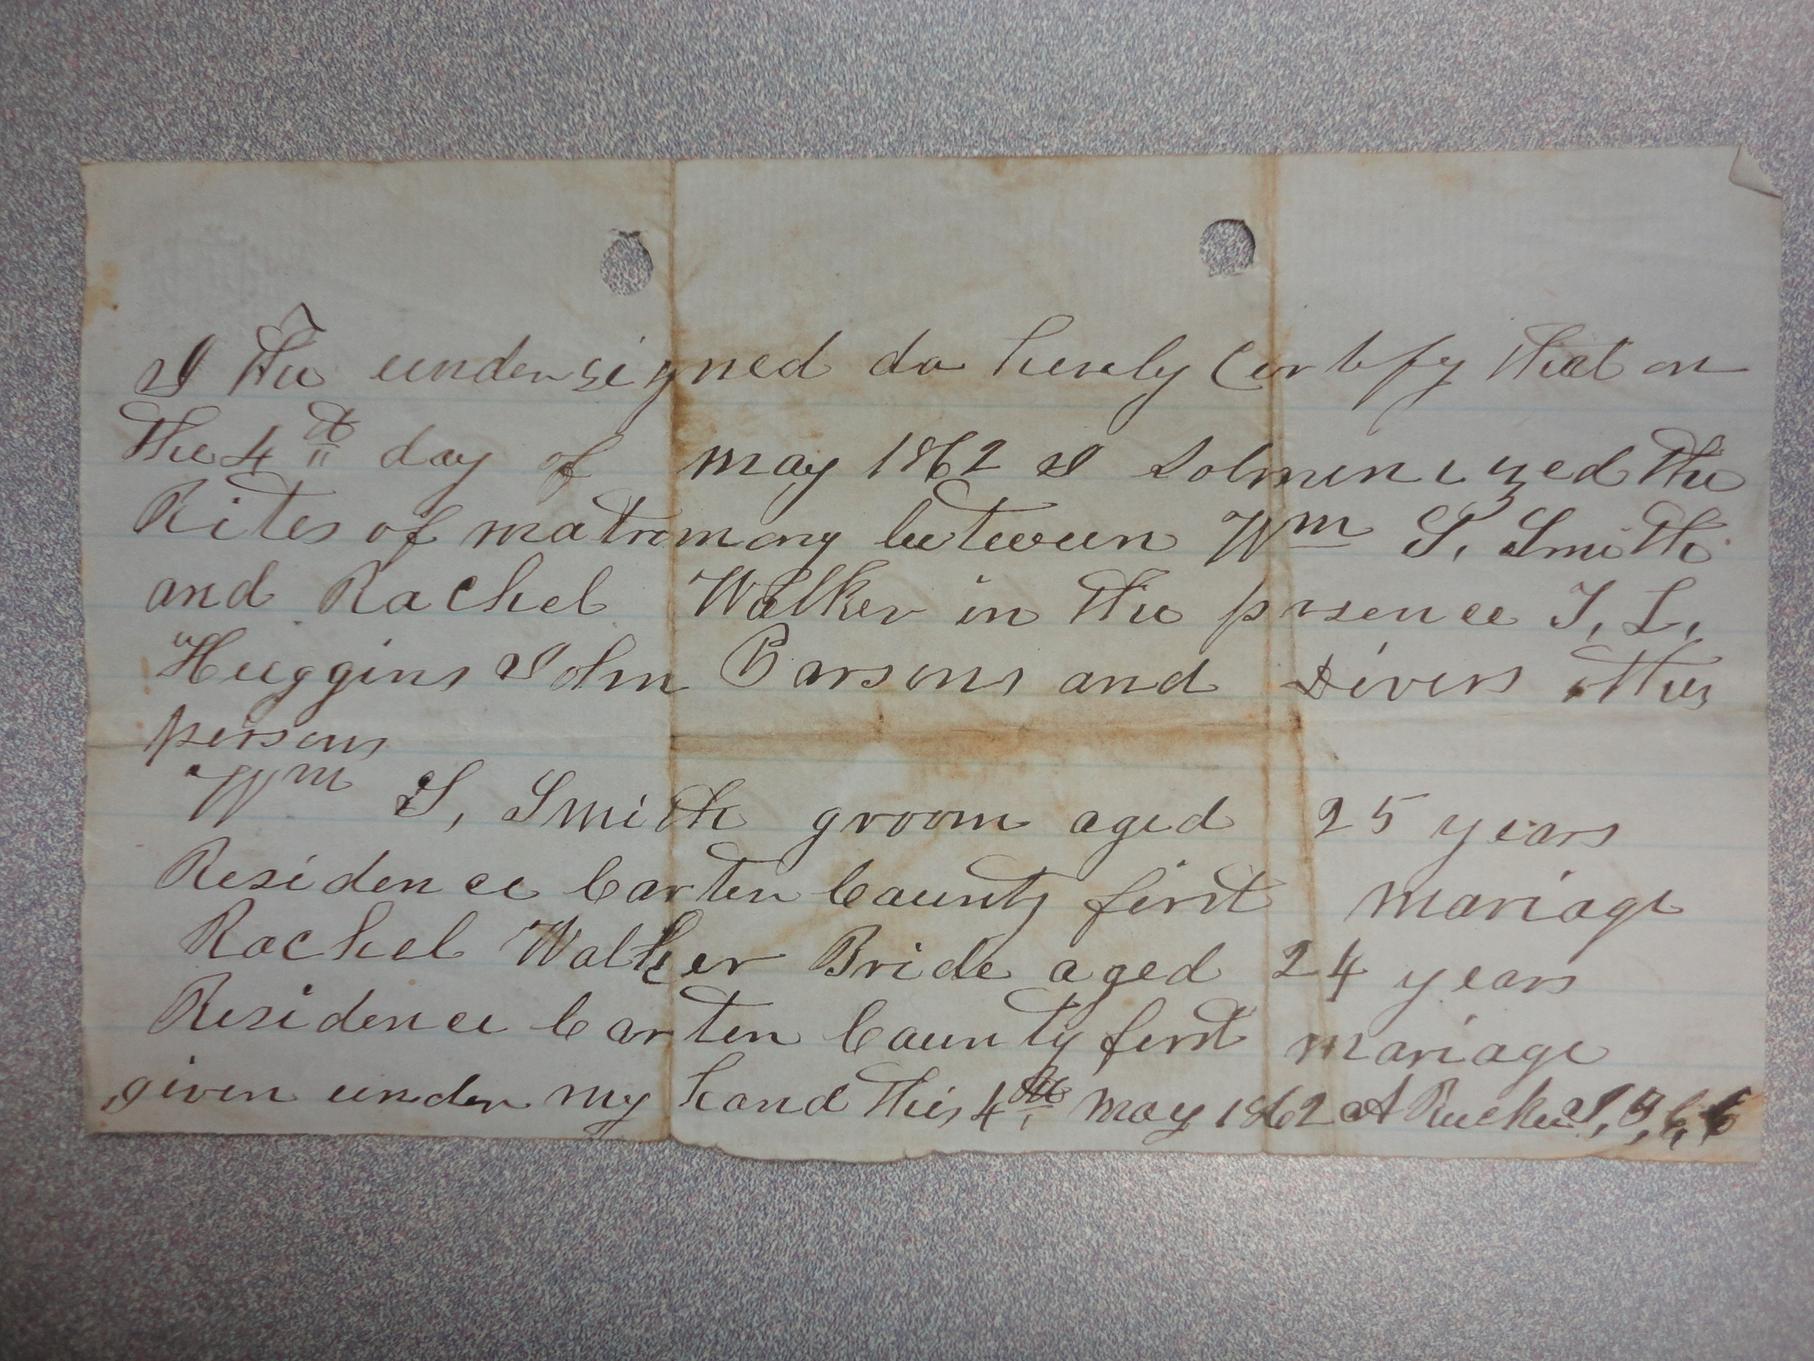 I the undersigned do herely Certify that on
the 4th day of may 1862 I Solmenized the
Rites of matromony between Wm S, Smith
and Rachel Walker in the prsence T, L,
Huggins John Parsons and Divers other
persons
Wm S, Smith groom aged 25 years
Residence Carter County first mariage
Rachel Walker Bride aged 24 years
Residence Carter County first mariage
given under my hand this 4th may 1862 A Rucker